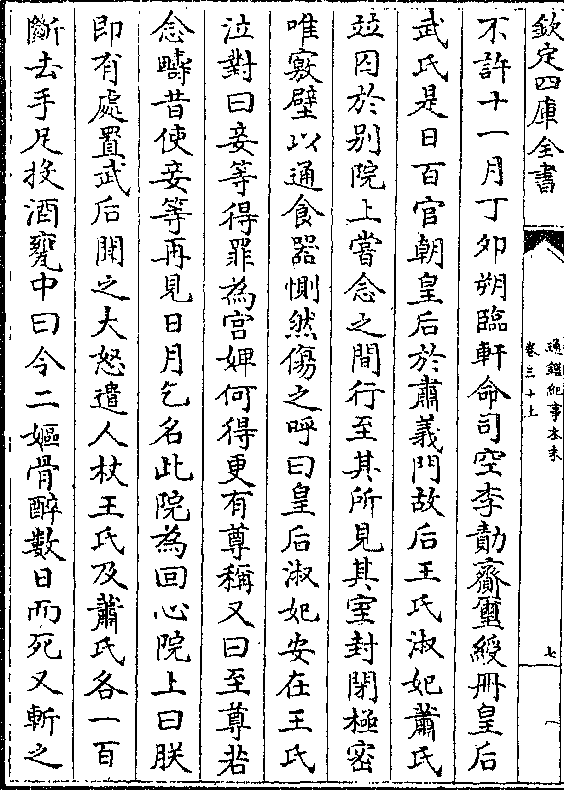 欽定四庫全書
通鑑紀事本末
卷三十上
七
不許十一月丁夘朔臨軒命司空李勣齎璽綬冊皇后
武氏是日百官朝皇后於肅義門故后王氏淑妃蕭氏
竝囚於别院上嘗念之間行至其所見其室封閉極密
唯竅壁以通食器惻然傷之呼曰皇后淑妃安在王氏
泣對曰妾等得罪為宫婢何得更有尊稱又曰至尊若
念疇昔使妾等再見日月乞名此院為回心院上曰朕
即有處置武后聞之大怒遣人杖王氏及蕭氏各一百
斷去手足投酒甕中曰令二嫗骨醉數日而死又斬之